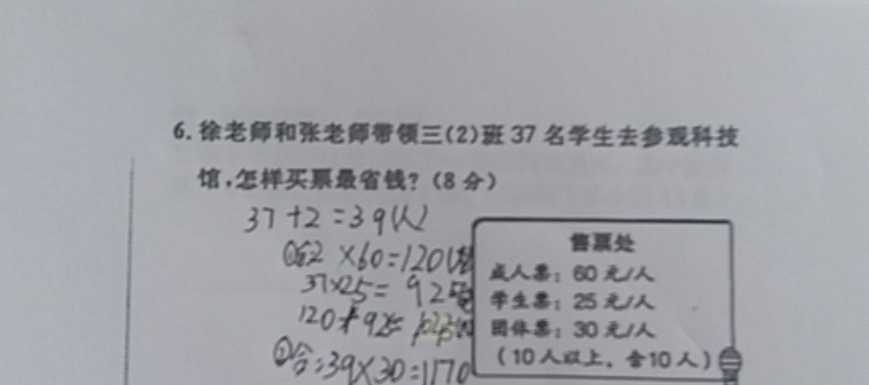 6. 徐老师和张老师带领三(2)班 37 名学生去参观科技
馆,怎样买票最省钱?(8 分)
37+2=39(人)
2×60=120
37×25=925
120+925=
②合:39×30=1170
售票处
成人票:60 元/人
学生票:25 元/人
团体票:30 元/人
(10 人以上,含10 人)